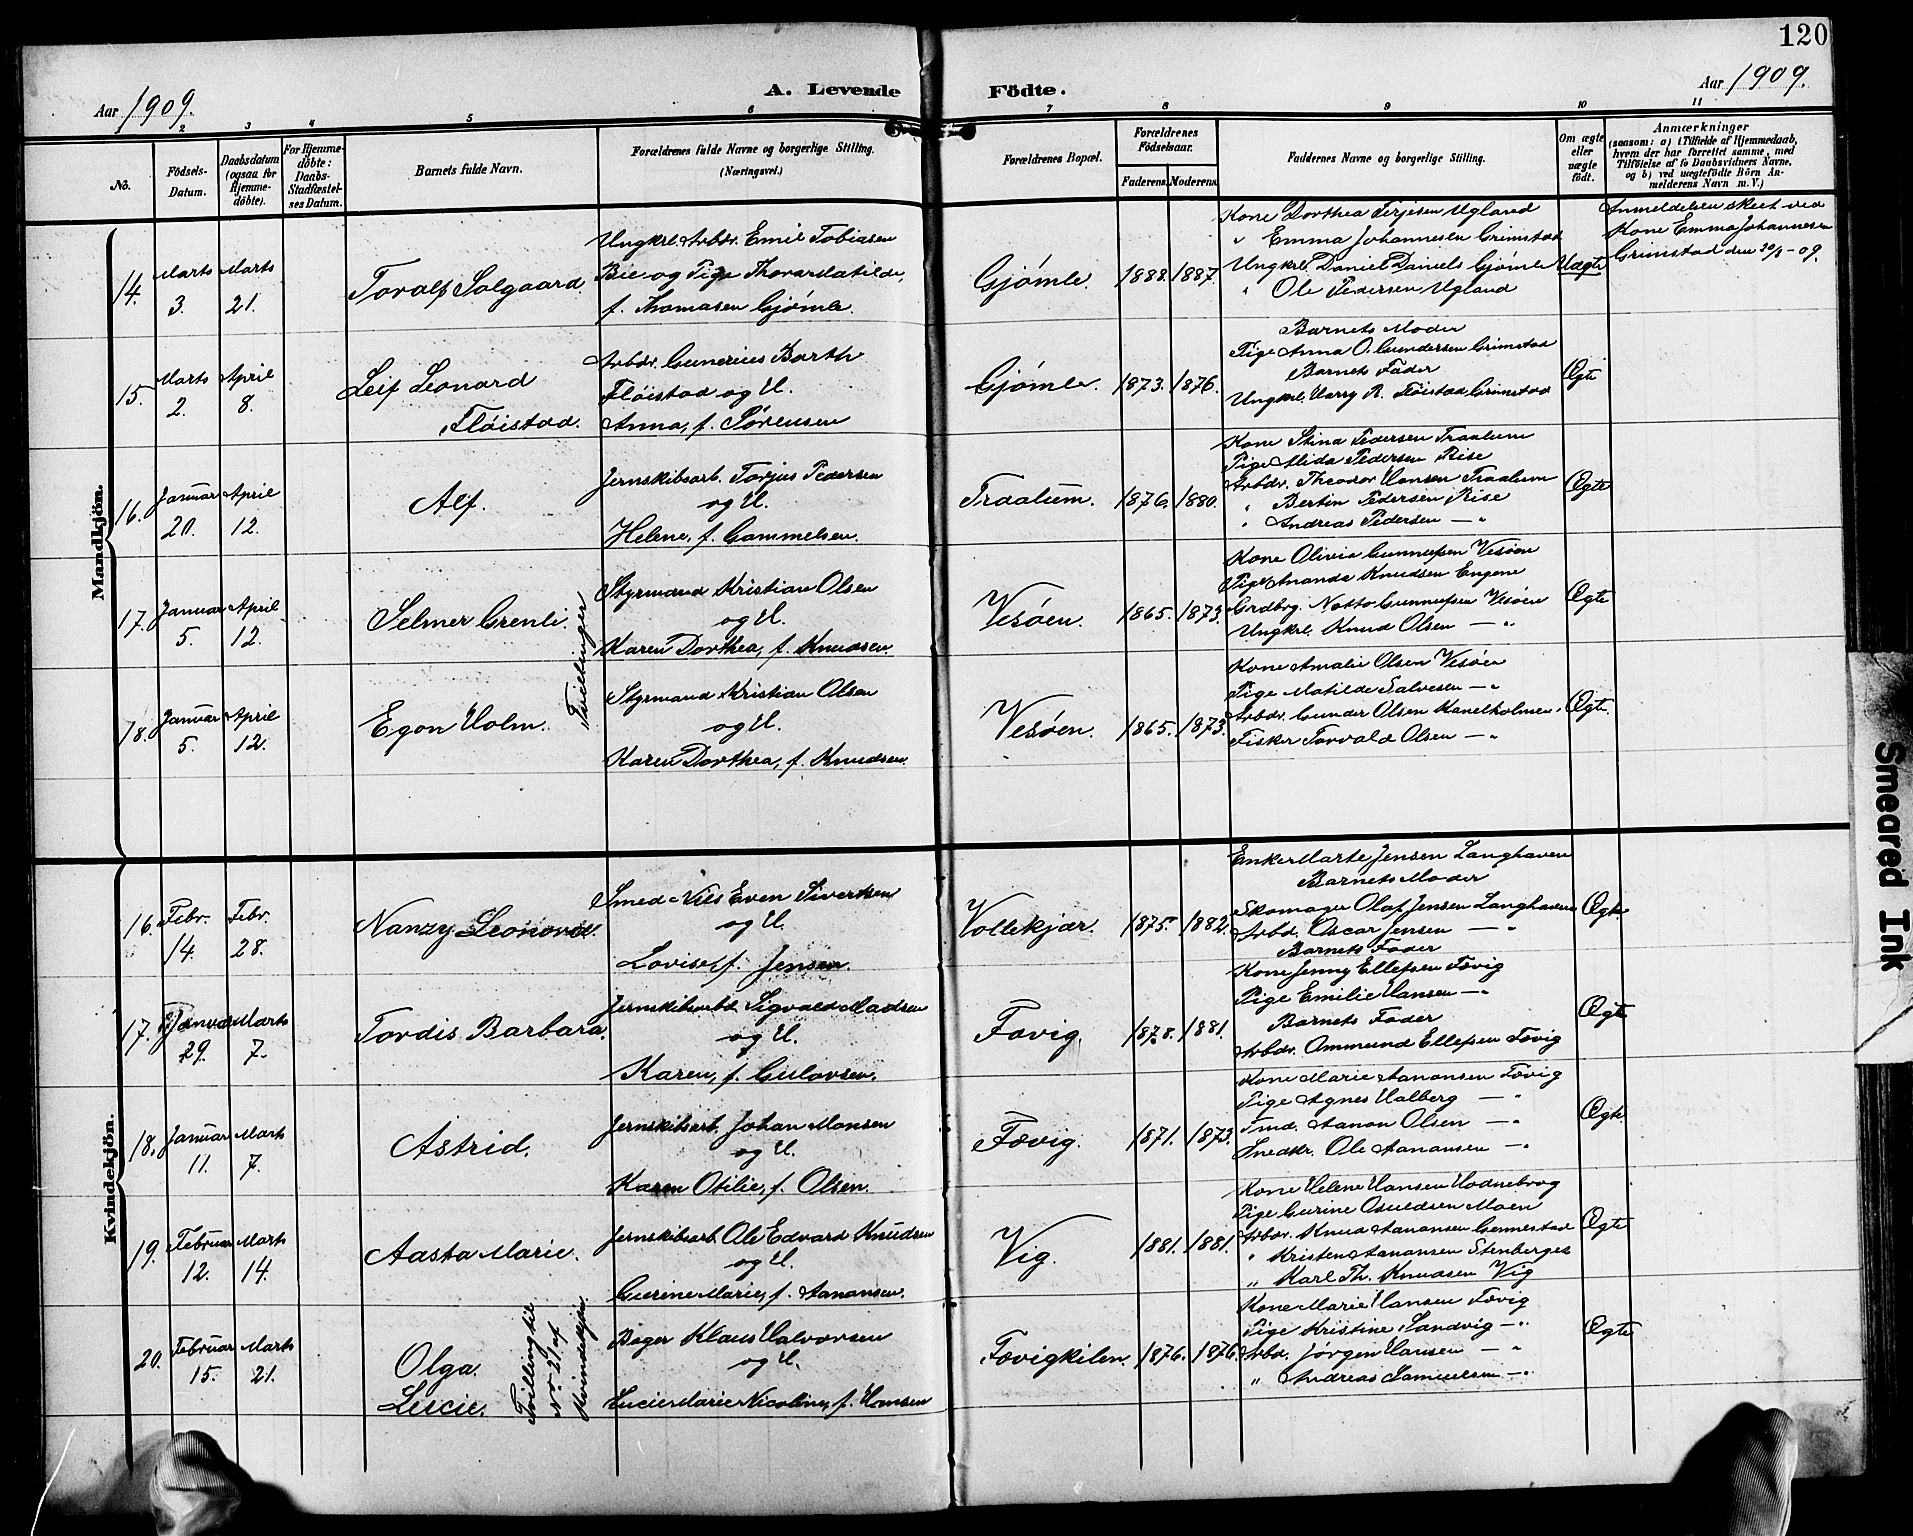 120
Aar 1909.
A. Levende Födte.
Aar 1909.
2 3 4 5 6 7 8 9 10 11
No.
Födsels-Datum.
Daabsdatum (ogsaa for Hjemme-döbte).
For Hjemme-döbte: Daabs-Stadfæstel-ses Datum.
Barnets fulde Navn.
Forældrenes fulde Navne og borgerlige Stilling. (Næringsvei.)
Forældrenes Bopæl.
Forældrenes Födselsaar.
Faderens. Moderens.
Faddernes Navne og borgerlige Stilling.
Om ægte eller uægte födt.
Anmærkninger
(saasom: a) i Tilfælde af Hjemmedaab, hvem der har forrettet samme, med Tilföielse af to Daabsvidners Navne, og b) ved uægtefödte Börn An-melderens Navn m. V.)
Mandkjön.
14. Marts 3. Marts 21.
Toralf Solgaard.
Ungkrl. Arbdr. Emil Tobiasen
Bie og Pige Thora Matilde,
f. Thomasen Gjømle.
Gjømle. 1888. 1887.
Kone Dorthea Terjesen Ugland
" Emma Johannesen Grimstad
Ungkrl. Daniel Daniels Gjømle
" Ole Pedersen Ugland
Uægte
Anmeldelsen skeet ved
Kone Emma Johannesen
Grimstad den 20/3-09.
15. Marts 2. April 8.
Leif Leonard
Fløistad.
Arbdr. Gunerius Barth
Fløistad og H.
Anna, f. Sørensen
Gjømle. 1873. 1876.
Barnets Moder
Pige Anna O. Gundersen Grimstad
Barnets Fader
Ungkrl. Harry R. Fløistad Grimstad
Ægte
16. Januar 20. April 12.
Alf.
Jernskibsarb. Torjus Pedersen
og H.
Helene, f. Gammelsen.
Traalum. 1876. 1880.
Kone Stina Pedersen Traalum
Pige Alida Pedersen Rise
Arbdr. Theodor Hansen Traalum
" Bertin Pedersen Rise
" Andreas Pedersen — "
Ægte
17. Januar 5. April 12.
Selmer Grenli.
Tvillinger
Styrmand Kristian Olsen
og H.
Karen Dorthea, f. Knudsen.
Vesøen. 1865. 1873.
Kone Olivia Gunnufsen Vesøen
Pige Ananda Knudsen Engene
Grdbrg. Notto Gunnufsen Vesøen
Ungkrl. Knud Olsen — "
Ægte
18. Januar 5. April 12.
Egon Holm.
Styrmand Kristian Olsen
og H.
Karen Dorthea, f. Knudsen.
Vesøen. 1865. 1873.
Kone Amalie Olsen Vesøen
Pige Matilde Salvesen — "
Arbdr. Gunder Olsen Kanelholmen.
Fisker Torvald Olsen — "
Ægte.
Kvindekjön.
16. Febr. 14. Febr. 28.
Nanzy Leonora.
Smed Nils Even Sivertsen
og H.
Lovise, f. Jensen.
Vollekjær. 1875. 1882.
Enke Marte Jensen Langhaven
Barnets Moder
Skomager Olaf Jensen Langhaven
Arbd. Oscar Jensen — "
Barnets Fader
Ægte
17. Januar 29. Marts 7.
Tordis Barbara.
Jernskibsarbd. Sigvald Madsen
og H.
Karen, f. Gulovsen.
Fævig. 1878. 1881.
Kone Jenny Ellefsen Fævig
Pige Emilie Hansen — "
Barnets Fader
Arbdr. Ommund Ellefsen Fævig
Ægte
18. Januar 11. Marts 7.
Astrid.
Jernskibsarb. Johan Monsen
og H.
Karen Otilie, f. Olsen.
Fævig. 1871. 1873.
Kone Marie Aanonsen Fævig
Pige Agnes Halberg — "
Tmd. Aanon Olsen — "
Snedkr. Ole Aanonsen — "
Ægte
19. Februar 12. Marts 14.
Aasta Marie.
Jernskibsarb. Ole Edvard Knudsen
og H.
Gurine Marie, f. Aanonsen.
Vig. 1881. 1881.
Kone Helene Hansen Hodnebrog
Pige Gurine Osuldsen Moen
Arbdr. Knud Aanonsen Gennestad
" Kristen Aanonsen Stenberget
" Karl Th. Knudsen Vig
Ægte
20. Februar 15. Marts 21.
Olga
Lucie.
Tvilling til
No 21 af
Kvindekjøn.
Bager Klaus Halvorsen
og H.
Lucie Marie Nicoline, f. Hansen
Fævigkilen. 1876. 1876.
Kone Marie Hansen Fævig
Pige Kristine Sandvig — "
Arbd. Jørgen Hansen — "
" Andreas Samuelsen — "
Ægte
Smeared Ink